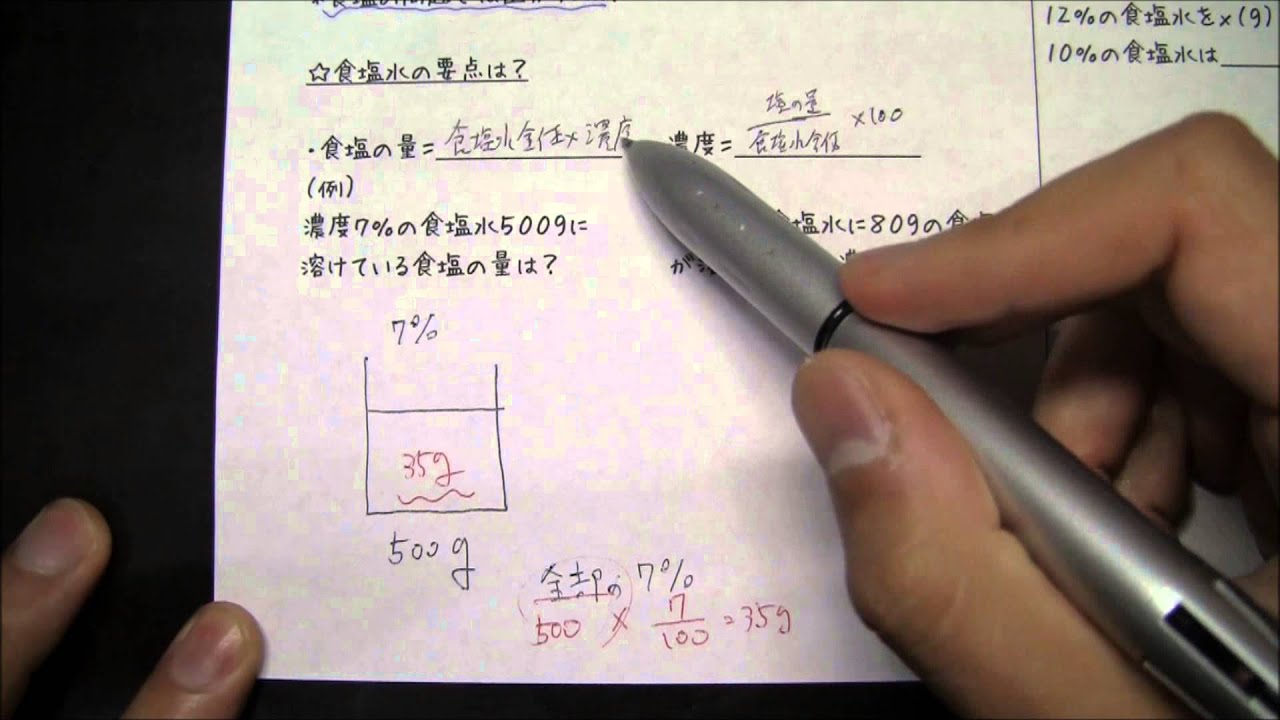 12%の食塩水をx(g)
10%の食塩水は
☆食塩水の要点は?
・食塩の量=食塩水全体×濃度
濃度=塩の量/食塩水全体 ×100
(例)
濃度7%の食塩水500gに
溶けている食塩の量は?
塩水に80gの食
が
7%
35g
500g
全部の 7%
500 × 7/100 = 35g